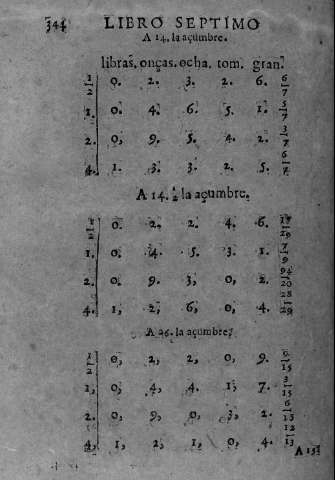 344 LIBRO SEPTIMO
A 14. la açumbre.
libras. onças. ocha. tom. gran.
1/2 0. 2. 3. 2. 6. 6/7
1. 0. 4. 6. 5. 1. 5/7
2. 0, 9. 5. 4. 2. 3/7
4. 1. 3. 3. 2. 5. 6/7
A 14. 1/2 la açumbre.
1/2 0. 2. 2. 4. 6.
1. 0. 4. 5. 3. 1.
2. 0, 9. 3, 0, 2.
4. 1, 2, 6, 0, 4. 28/29
la açumbre.
1/2 0, 2, 2, 0, 9.
1, 0, 4, 4. 1, 7. 3/15
2. 0, 9, 0, 3, 2.
4, 1, 2, 1, 0, 4. 12/13